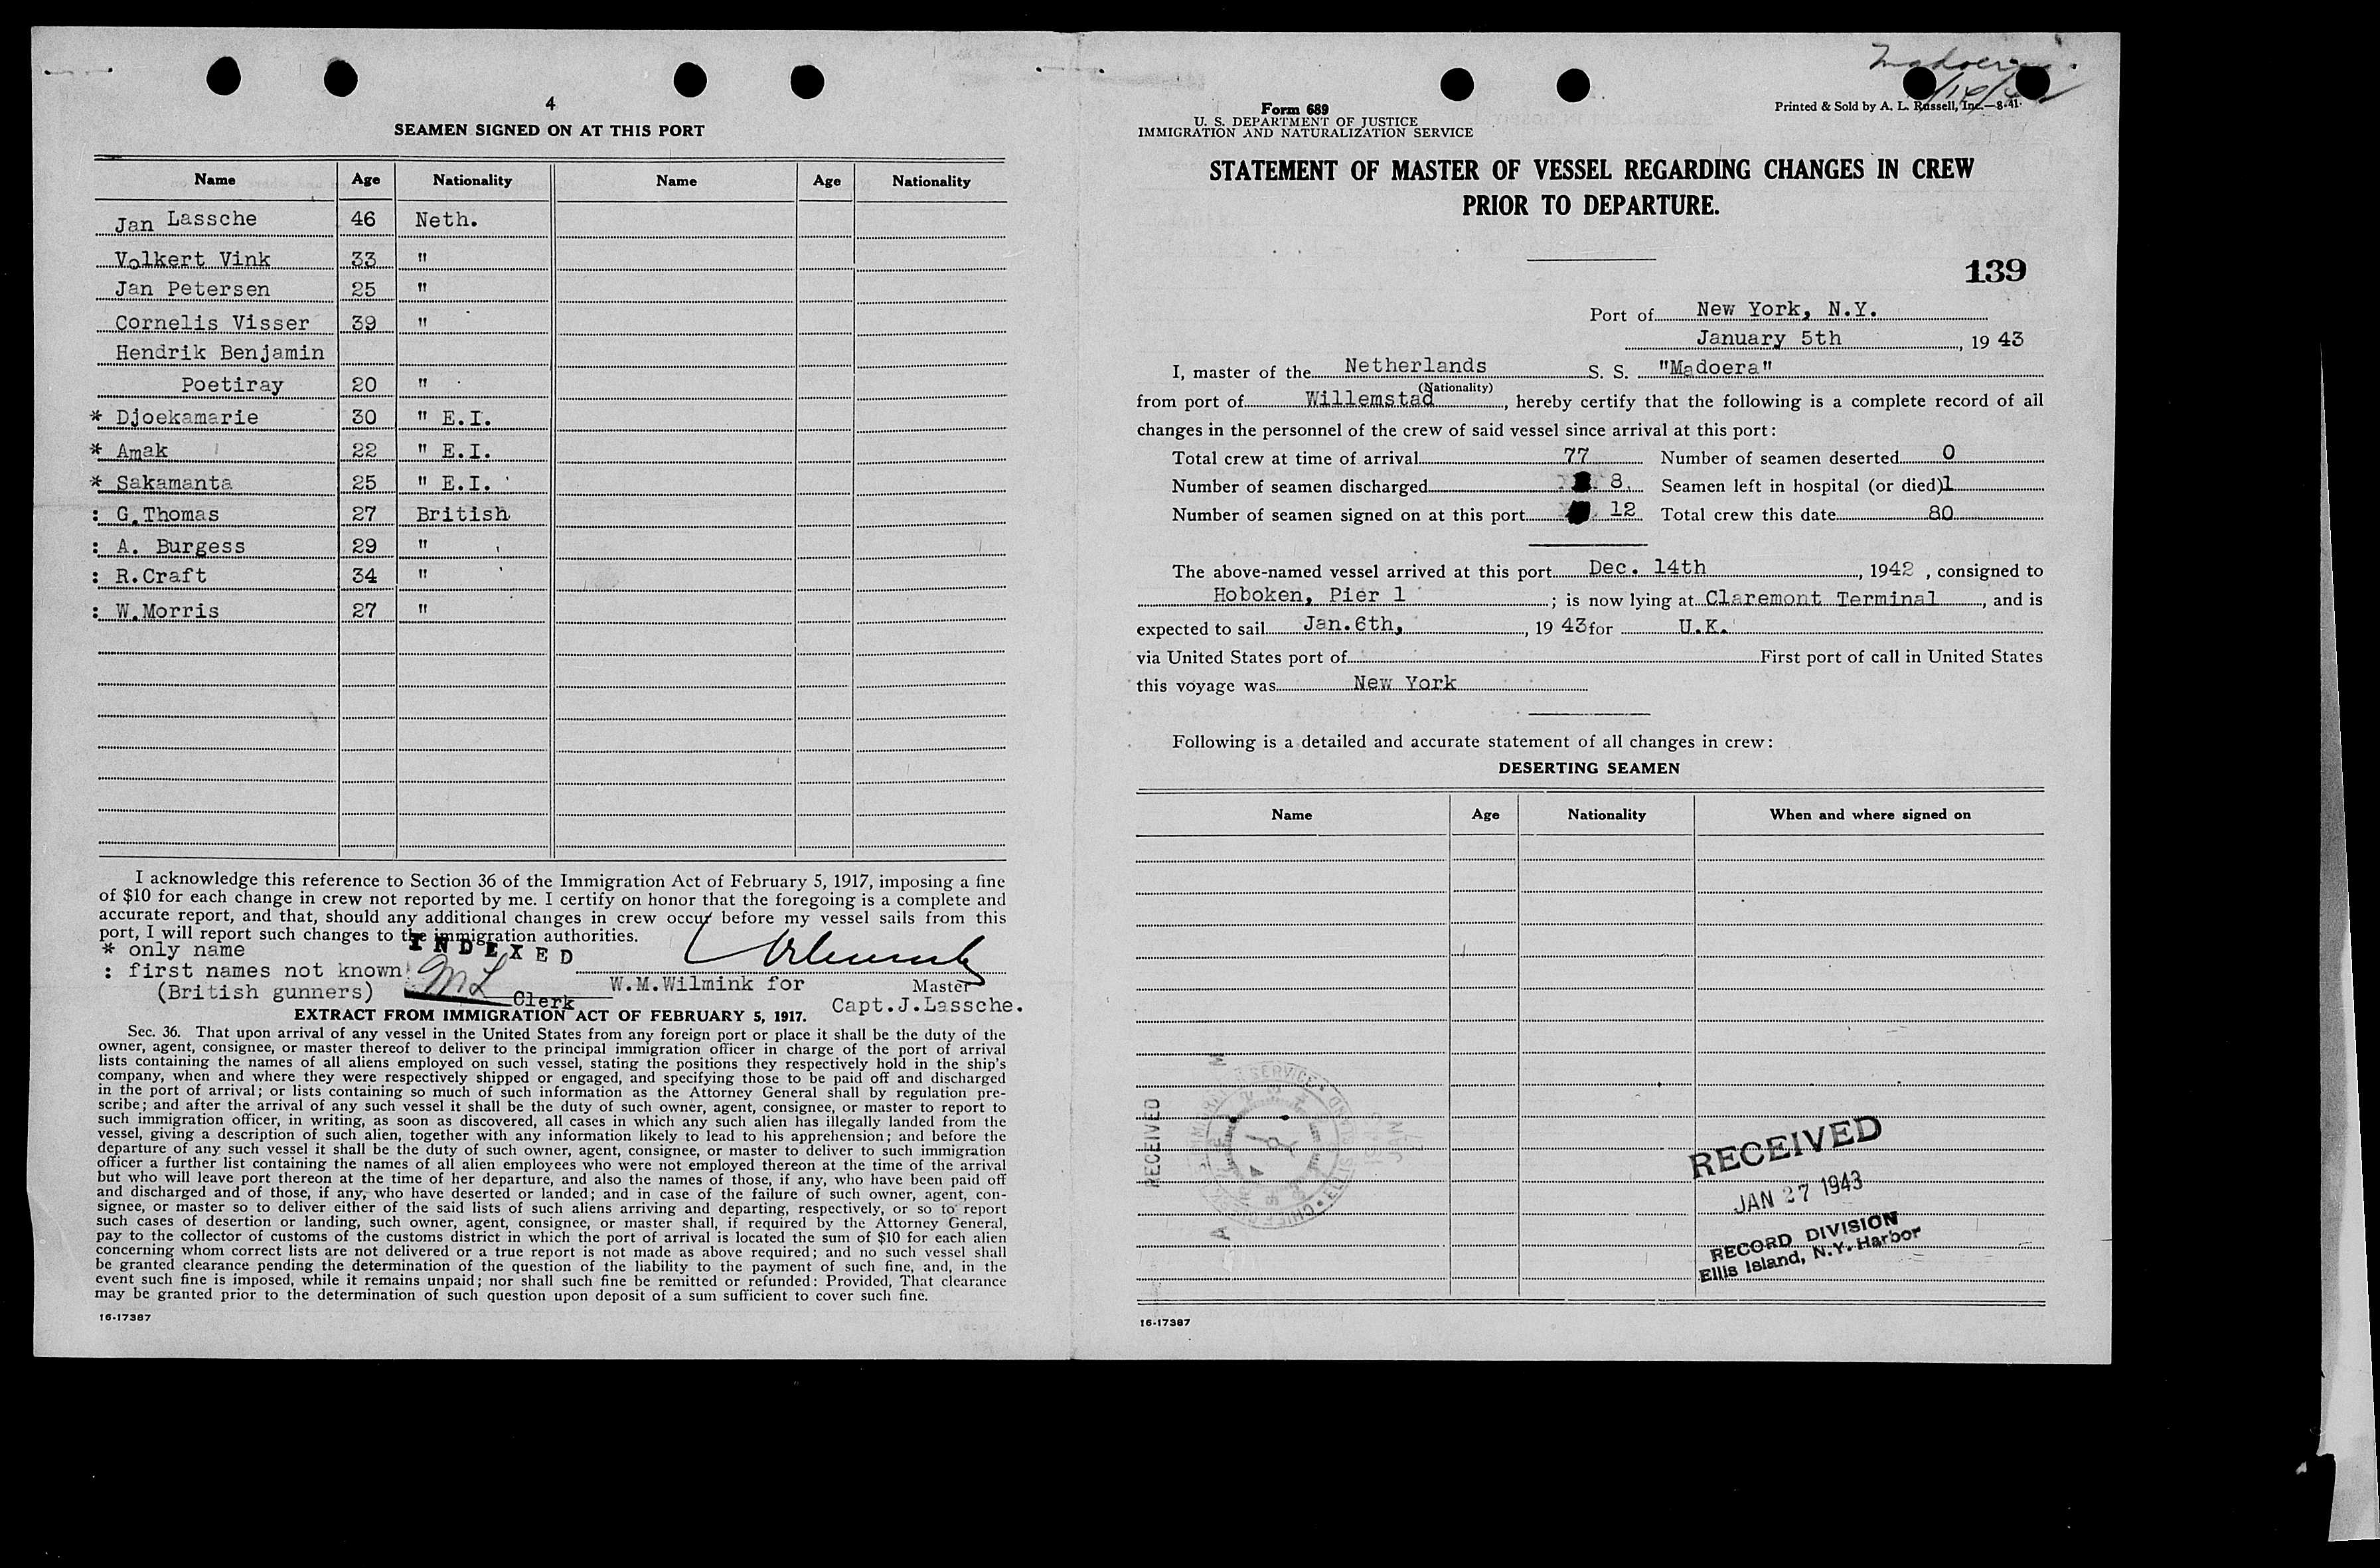 4
SEAMEN SIGNED ON AT THIS PORT
Name Age Nationality Name Age Nationality
Jan Lassche 46 Neth.
Volkert Vink 33 "
Jan Petersen 25 "
Cornelis Visser 39 "
Hendrik Benjamin
Poetiray 20 "
* Djoekamarie 30 " E.I.
* Amak 22 " E.I.
* Sakamanta 25 " E.I.
: G.Thomas 27 British
: A. Burgess 29 "
: R.Craft 34 "
: W.Morris 27 "
I acknowledge this reference to Section 36 of the Immigration Act of February 5, 1917, imposing a fine
of $10 for each change in crew not reported by me. I certify on honor that the foregoing is a complete and
accurate report, and that, should any additional changes in crew occur before my vessel sails from this
port, I will report such changes to the immigration authorities.
* only name
INDEXED
: first names not known
(British gunners)
ML
Clerk
W.M.Wilmink for
Master
Capt.J.Lassche.
EXTRACT FROM IMMIGRATION ACT OF FEBRUARY 5, 1917.
Sec. 36. That upon arrival of any vessel in the United States from any foreign port or place it shall be the duty of the
owner, agent, consignee, or master thereof to deliver to the principal immigration officer in charge of the port of arrival
lists containing the names of all aliens employed on such vessel, stating the positions they respectively hold in the ship's
company, when and where they were respectively shipped or engaged, and specifying those to be paid off and discharged
in the port of arrival; or lists containing so much of such information as the Attorney General shall by regulation pre-
scribe; and after the arrival of any such vessel it shall be the duty of such owner, agent, consignee, or master to report to
such immigration officer, in writing, as soon as discovered, all cases in which any such alien has illegally landed from the
vessel, giving a description of such alien, together with any information likely to lead to his apprehension; and before the
departure of any such vessel it shall be the duty of such owner, agent, consignee, or master to deliver to such immigration
officer a further list containing the names of all alien employees who were not employed thereon at the time of the arrival
but who will leave port thereon at the time of her departure, and also the names of those, if any, who have been paid off
and discharged and of those, if any, who have deserted or landed; and in case of the failure of such owner, agent, con-
signee, or master so to deliver either of the said lists of such aliens arriving and departing, respectively, or so to report
such cases of desertion or landing, such owner, agent, consignee, or master shall, if required by the Attorney General,
pay to the collector of customs of the customs district in which the port of arrival is located the sum of $10 for each alien
concerning whom correct lists are not delivered or a true report is not made as above required; and no such vessel shall
be granted clearance pending the determination of the question of the liability to the payment of such fine, and, in the
event such fine is imposed, while it remains unpaid; nor shall such fine be remitted or refunded: Provided, That clearance
may be granted prior to the determination of such question upon deposit of a sum sufficient to cover such fine.
16-17387
Form 689
U. S. DEPARTMENT OF JUSTICE
IMMIGRATION AND NATURALIZATION SERVICE
Printed & Sold by A. L. Russell, Inc.—8-41
STATEMENT OF MASTER OF VESSEL REGARDING CHANGES IN CREW
PRIOR TO DEPARTURE.
139
Port of New York, N.Y.
January 5th, 19 43
I, master of the Netherlands S. S. "Madoera"
(Nationality)
from port of Willemstad, hereby certify that the following is a complete record of all
changes in the personnel of the crew of said vessel since arrival at this port:
Total crew at time of arrival 77 Number of seamen deserted 0
Number of seamen discharged 8. Seamen left in hospital (or died) 1
Number of seamen signed on at this port 12 Total crew this date 80
The above-named vessel arrived at this port Dec. 14th, 1942, consigned to
Hoboken, Pier 1; is now lying at Claremont Terminal, and is
expected to sail Jan.6th, , 19 43 for U.K.
via United States port of First port of call in United States
this voyage was New York
Following is a detailed and accurate statement of all changes in crew:
DESERTING SEAMEN
Name Age Nationality When and where signed on
RECEIVED
RECEIVED
JAN 27 1943
RECORD DIVISION
Ellis Island, N.Y. Harbor
16-17387